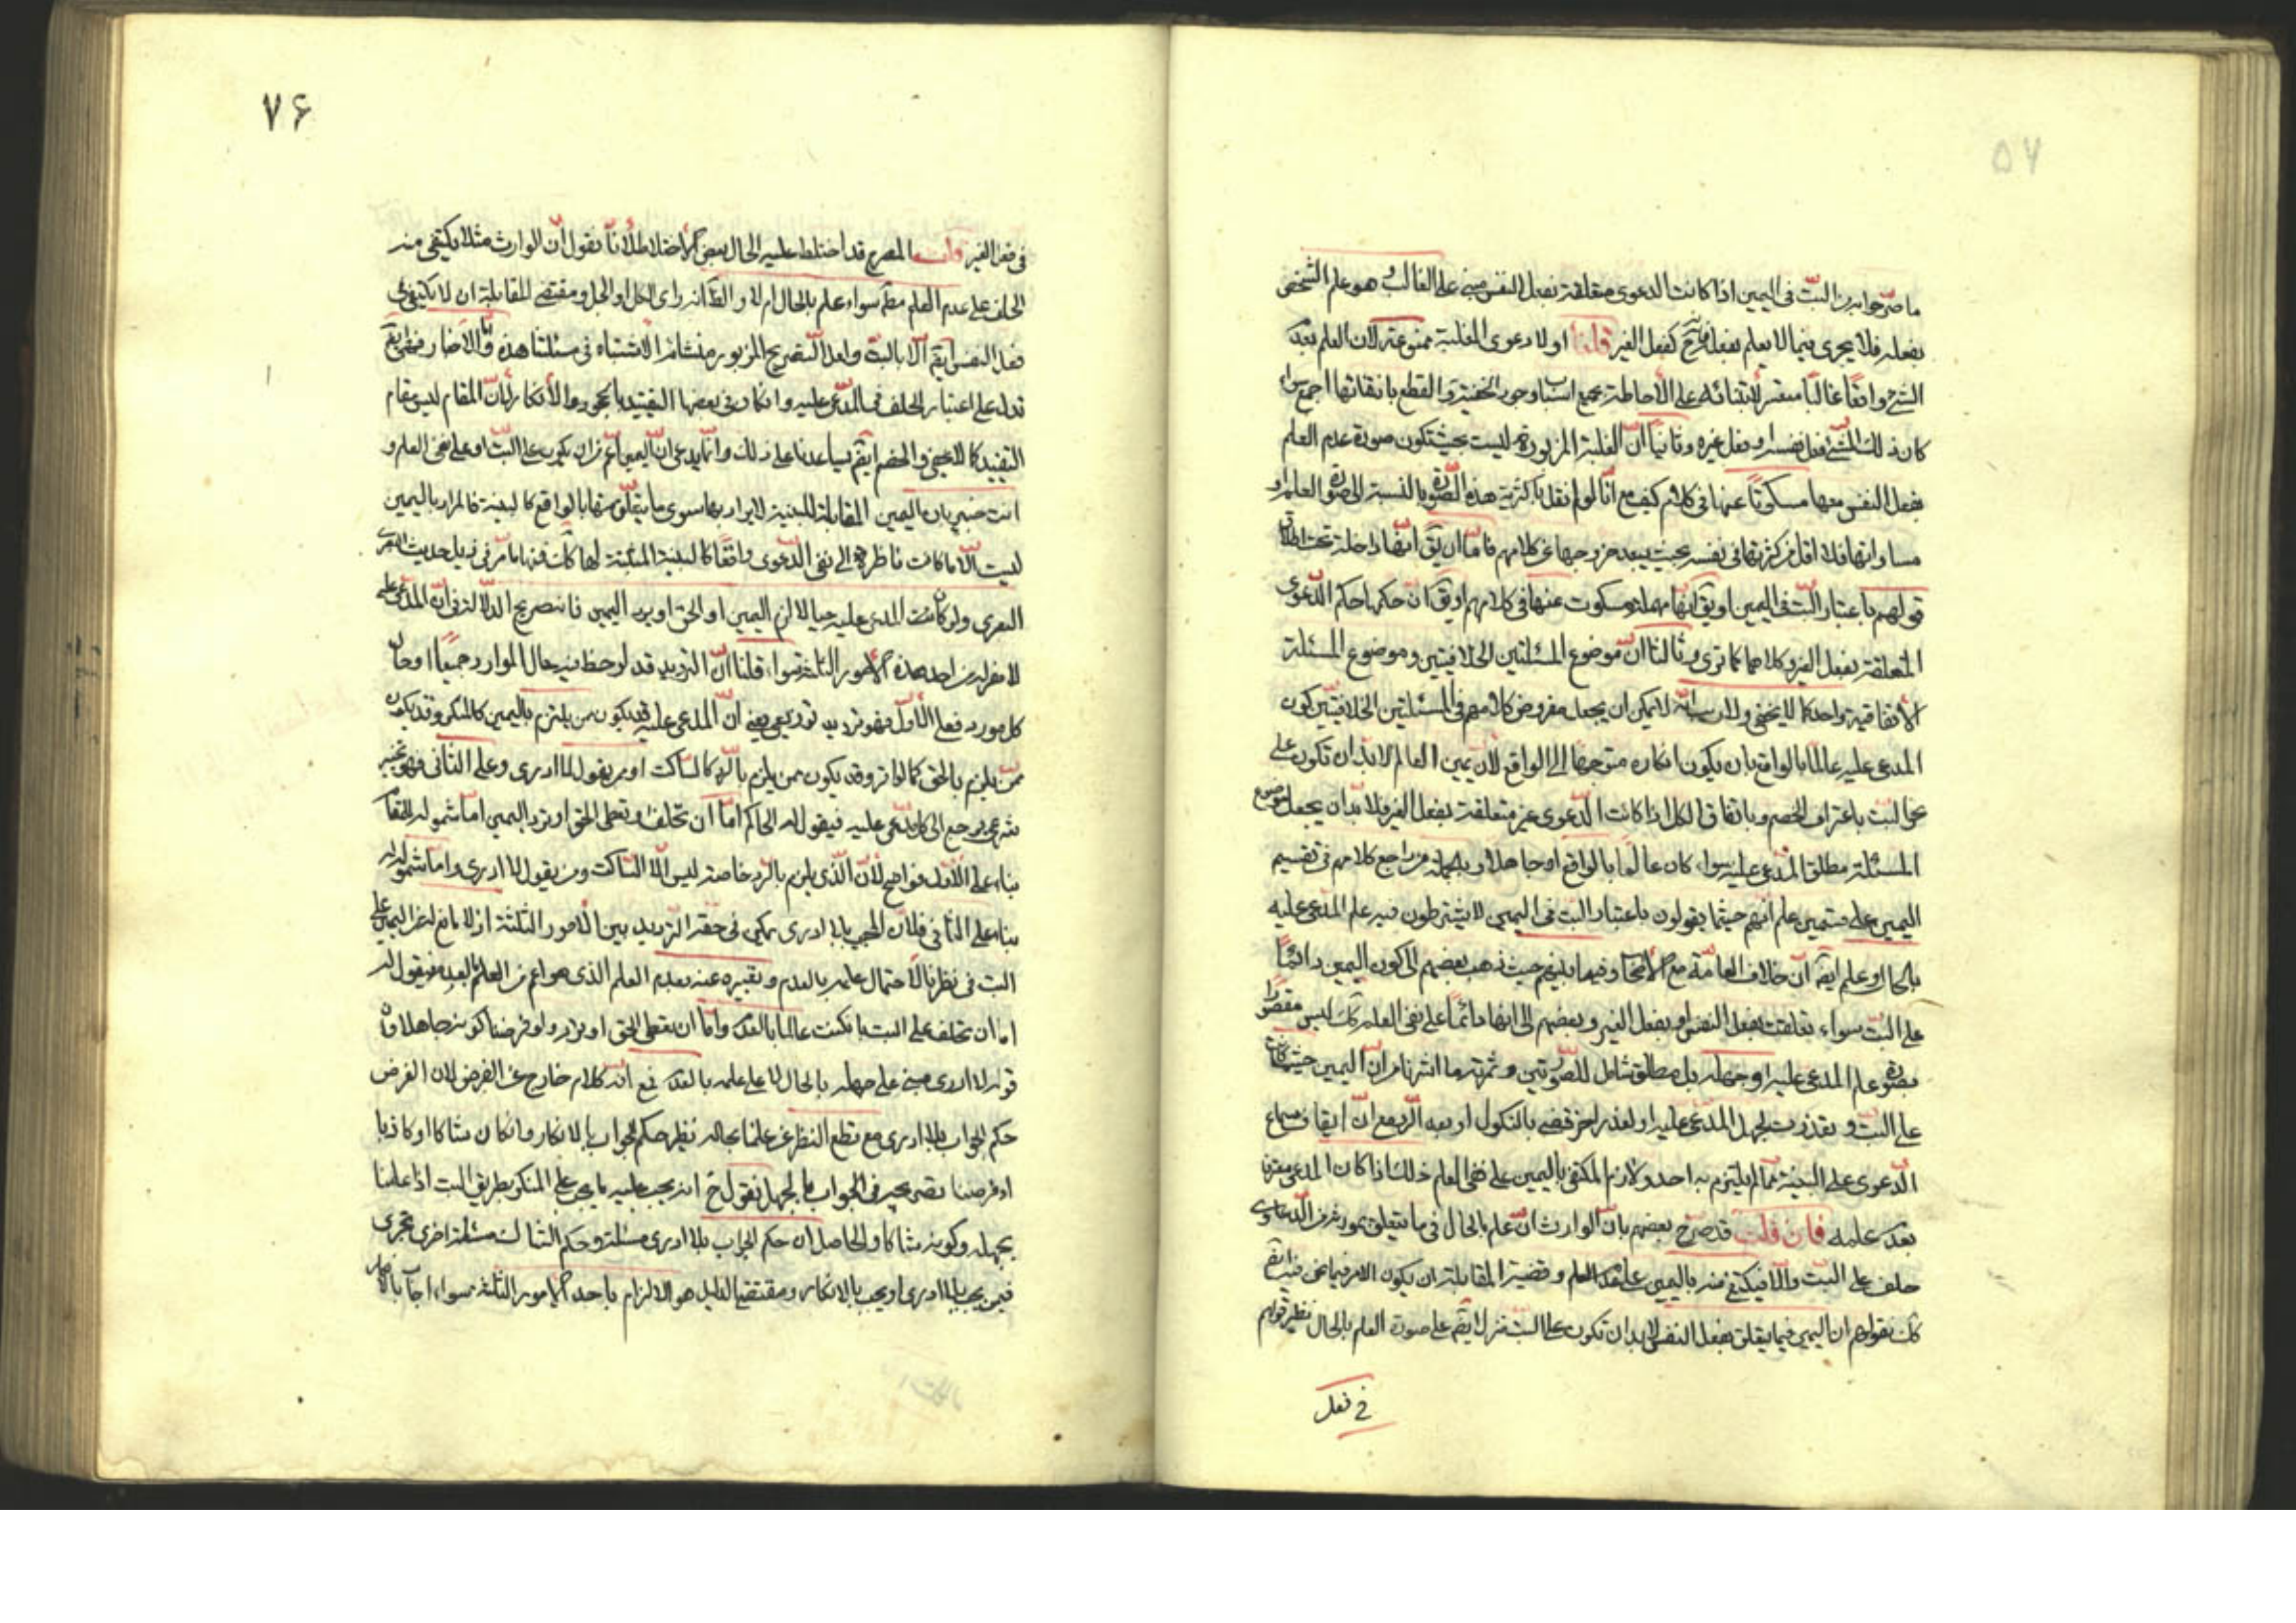 ۵۷
ما صرّحوا به من البتّ فى اليمين اذا كانت الدعوى متعلقة بفعل النفس مبنى على الغالب و هو علم الشخص
بفعله فلا يجرى فيما لا يعلم بفعله كفعل الغير قلنا اولا دعوى الغلبة ممنوعة لان العلم بعدم
الشئ واقعًا غالبًا متعسر لابتنائه على الأحاطة بجميع اسباب وجوده الخفية و القطع بانتفائها اجمع سواء
كان ذلك الشئ فعل نفسه او فعل غيره وثانيًا انّ الغلبة المزبورة ليست بحيث تكون صورة عدم العلم
بفعل النفس معها مسكوتًا عنها فى كلامهم كيف مع انّا لو لم نقل باكثرية هذه الصّورة بالنسبة الى صورة العلم او
مساواتها فلا اقل من كثرتها فى نفسه بحيث يبعد خروجها عن كلامهم فامّا ان يق انّها داخلة تحت اطلاق
قولهم باعتبار البتّ فى اليمين او يق انها مهملة و مسكوت عنها فى كلامهم او يق ان حكمها حكم الدّعوى
المتعلقة بفعل الغير و كلاهما كما ترى و ثالثا انّ موضوع المسئلتين الخلافيتين و موضوع المسئلة
الأتفاقية واحد كما لا يخفى ولا لا يمكن ان يجعل مفروض كلامهم فى المسئلتين الخلافيّتين كون
المدعى عليه عالمًا بالواقع بان يكون انكاره متوجها الى الواقع لأن يمين العالم لا بد ان تكون على
نحو البت باعتراف الخصم و باتفاق الكل اذا كانت الدّعوى غير متعلقة بفعل الغير فلا بدّ ان يجعل موضوع
المسئلة مطلق المدعى عليه سواء كان عالمًا بالواقع او جاهلا و بالجملة من راجع كلامهم فى تقسيم
اليمين على قسمين علم انهم حيثما يقولون باعتبار البت فى اليمين لا يشترطون فيه علم المدعى عليه
بالحال و علم ايضً انّ خلاف العامّة مع الأصحاب و فيما بينهم حيث ذهب بعضهم الى كون اليمين دائمًا
على البتّ سواء تعلقت بفعل النفس او بفعل الغير و بعضهم الى انها دائمًا على نفى العلم ليس مقصورًا
بصورة علم المدعى عليه او جهله بل مطلق شامل للصّورتين و ثمرته ما اشرنا من انّ اليمين حيثما كانت
على البت و تعذرت لجهل المدعى عليه او لعذر اخر قضى بالنكول او بعد الرّد مع انّ ايقاف سماع
الدّعوى على البيّنة مما لم يلتزم به احد ولازم المكتفى باليمين على نفى العلم ذلك اذا كان المدعى معترفا
بعدم علمه فان قلت قد صرّح بعضهم بانّ الوارث ان علم بالحال فى ما يتعلق بمورثه من الدّعاوى
حلف على البتّ والّا فيكتفى منه باليمين على عدم العلم و قضية المقابلة ان يكون الامر فيما نحن فيه ايضً
كك فقولهم ان اليمين فيما يتعلق بفعل النفس لا بد ان تكون على البتّ منزل ايضً على صورة العلم بالحال نظير قولهم
فى فعل
۷۶
فى فعل الغير قلت المصرح قد اختلط عليه الحال بعض الأختلاط لانّا نقول انّ الوارث مثلا يكتفى منه
الحلف على عدم العلم مطلقا سواء علم بالحال ام لا و راى الكل او الجل و مقتضى المقابلة ان لا يكتفى فى
فعل النفس ايضً الّا بالبتّ و لعل التّصريح المزبور منشائه الأشتباه فى مسئلتنا هذه و امّا الأخبار فهى ايضً
تدل على اعتبار الحلف فى المدّعى عليه وان كان فى بعضها التقييد بالجحود و الأنكار لانّ المقام ليس مقام
التقييد كما لا يخفى والخصم ايضً يساعدنا على ذلك وانّما يدعى انّ اليمين اعمّ من ان يكون على البتّ او على نفى العلم و
انت خبير بان اليمين المقابلة للبينة لا يراد بها سوى ما يتعلّق منها بالواقع كالبينة فالمراد باليمين
ليست الّا ما كانت ناظرة الى نفى الدّعوى واقعًا كالبينة المثبتة لها كك فمنها ما مرّ فى ذيل حديث البصرى
البصرى ولو كان المدعى عليه حيا لالزم اليمين او الحق او يرد اليمين فانه صريح الدّلالة فى انّ المدّعى عليه
لا مفر له من احد هذه الأمور الثلثة سواء قلنا انّ الترديد قد لوحظ فيه حال الموارد جميعًا او حال
كل مورد فعلى الأوّل فهو ترديد توزيعى يعنى انّ المدعى عليه قد يكون ممن يلتزم باليمين كالمنكر و قد يكون
ممّن يلزم بالحق كما لو اقر و قد يكون ممن يلزم بالرّد كالسّاكت او من يقول لا ادرى و على الثانى فهو تخيير
شرعى يرجع الى كل مدّعى عليه فيقول له الحاكم امّا ان تحلف او تعطى الحق او ترد اليمين امّا شموله للمقام
بناء على الأوّل فواضح لأنّ الّذى يلزم بالرّد خاصة ليس الّا السّاكت ومن يقول لا ادرى و امّا شموله له
بناء على الثانى فلأنّ المجيب بلا ادرى يمكن فى حقه الترديد بين الأمور الثلثة اذ لا مانع له عن اليمين على
البت فى نظرنا لأحتمال علمه بالعدم و تعبيره عنه بعدم العلم الذى هو اعم من العلم بالعدم فيقول له
اما ان تحلف على البت ان كنت عالما بالعدم وامّا ان تعطى الحق او ترد ولو فرضنا كونه جاهلا وان
قوله لا ادرى مبنى على جهله بالحال لا على علمه بالعدم فمع انّه كلام خارج عن الفرض لان الغرض
حكم الجواب بلا ادرى مع قطع النظر عن علمنا بحاله نظير حكم الجواب بالانكار وان كان شاكا او كاذبا
او فرضنا تصريحه فى الجواب بالجهل نقول ح انه يجب عليه ما يجب على المنكر بطريق البت اذا علمنا
بجهله و كونه شاكا والحاصل ان حكم الجواب بلا ادرى مسئلة و حكم الشاك مسئلة اخرى تجرى
فيمن يجب بلا ادرى او يجيب بالانكار و مقتضى الدليل هو الالزام باحد الامور الثلثة سواء اجاب بالانكار